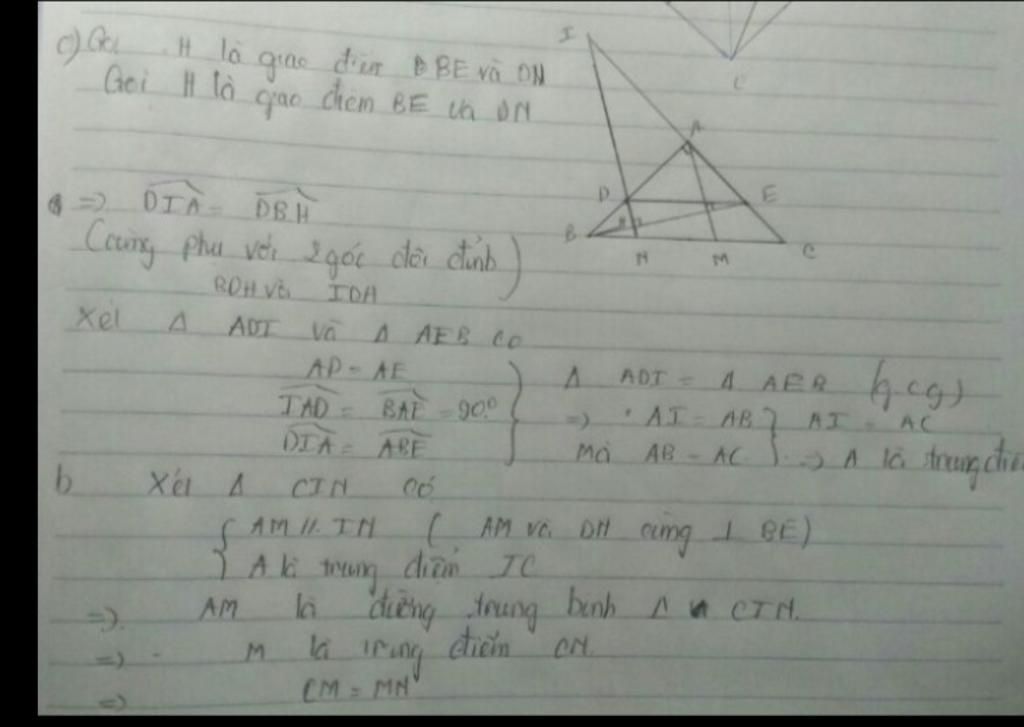 c) Gọi H là giao điểm BE và DN
Gọi H là giao điểm BE và DN
=> DIA = DBH
(cùng phụ với 2 góc đối đỉnh)
BDH và IDA
Xét Δ ADI và Δ AEB có
AD = AE
IAD = BAE = 90°
DIA = ABE
Δ ADI = Δ AEB (g.c.g)
=> AI = AB
Mà AB = AC
AI = AC
=> A là trung điể
b Xét Δ CIN có
AM // IN ( AM và DH cùng ⊥ BE)
A là trung điểm IC
=> AM là đường trung bình Δ CIN.
=> M là trung điểm CN.
=> CM = MN
I
A
D
E
B
N
M
C
C